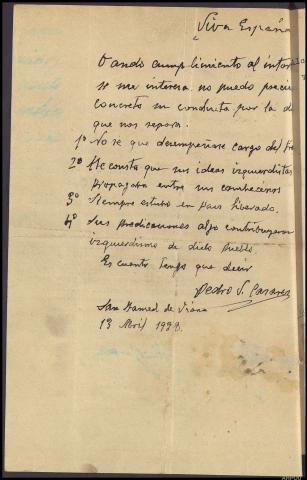 Viva España
Dando cumplimiento al
se me interesa no puedo
concreto su conducta por la
que nos separa:
1º No se que desempeñase cargo del
2º Me consta que sus ideas izquierdistas
propagaba entre sus
3º Siempre estubo en pais liberado.
4º Sus predicaciones algo contribuyeron
izquierdismo de dicho pueblo.
Es cuanto tengo que decir
Pedro S.
San Mamed de
13 Abril 1938.